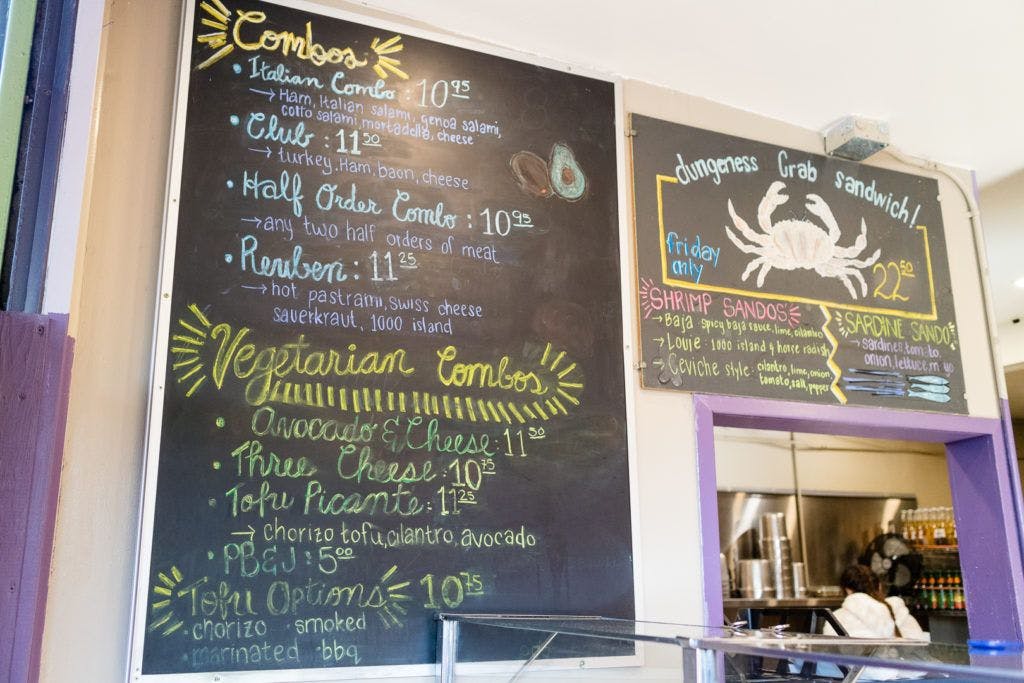 Combos
• Italian Combo : 10 95
→ Ham, Italian salami, genoa salami,
cotto salami, mortadella, cheese
• Club : 11 50
→ turkey, Ham, bacn, cheese
• Half Order Combo : 10 95
→ any two half orders of meat
• Reuben : 11 25
→ hot pastrami, swiss cheese
sauerkraut, 1000 island
Vegetarian Combos
• Avocado & Cheese : 11 50
• Three Cheese : 10 75
• Tofu Picante : 11 25
→ chorizo tofu, cilantro, avocado
• PB&J : 5 00
Tofu Options 10 75
• chorizo • smoked
• marinated • bbq
dungeness Crab sandwich!
friday
only
22 50
SHRIMP SANDOS
→ Baja : spicy baja sauce, lime, cilantro
→ Louie : 1000 island & horse radish
→ Ceviche style : cilantro, lime, onion,
tomato, salt, pepper
SARDINE SANDO
→ sardines, tomato,
onion, lettuce,